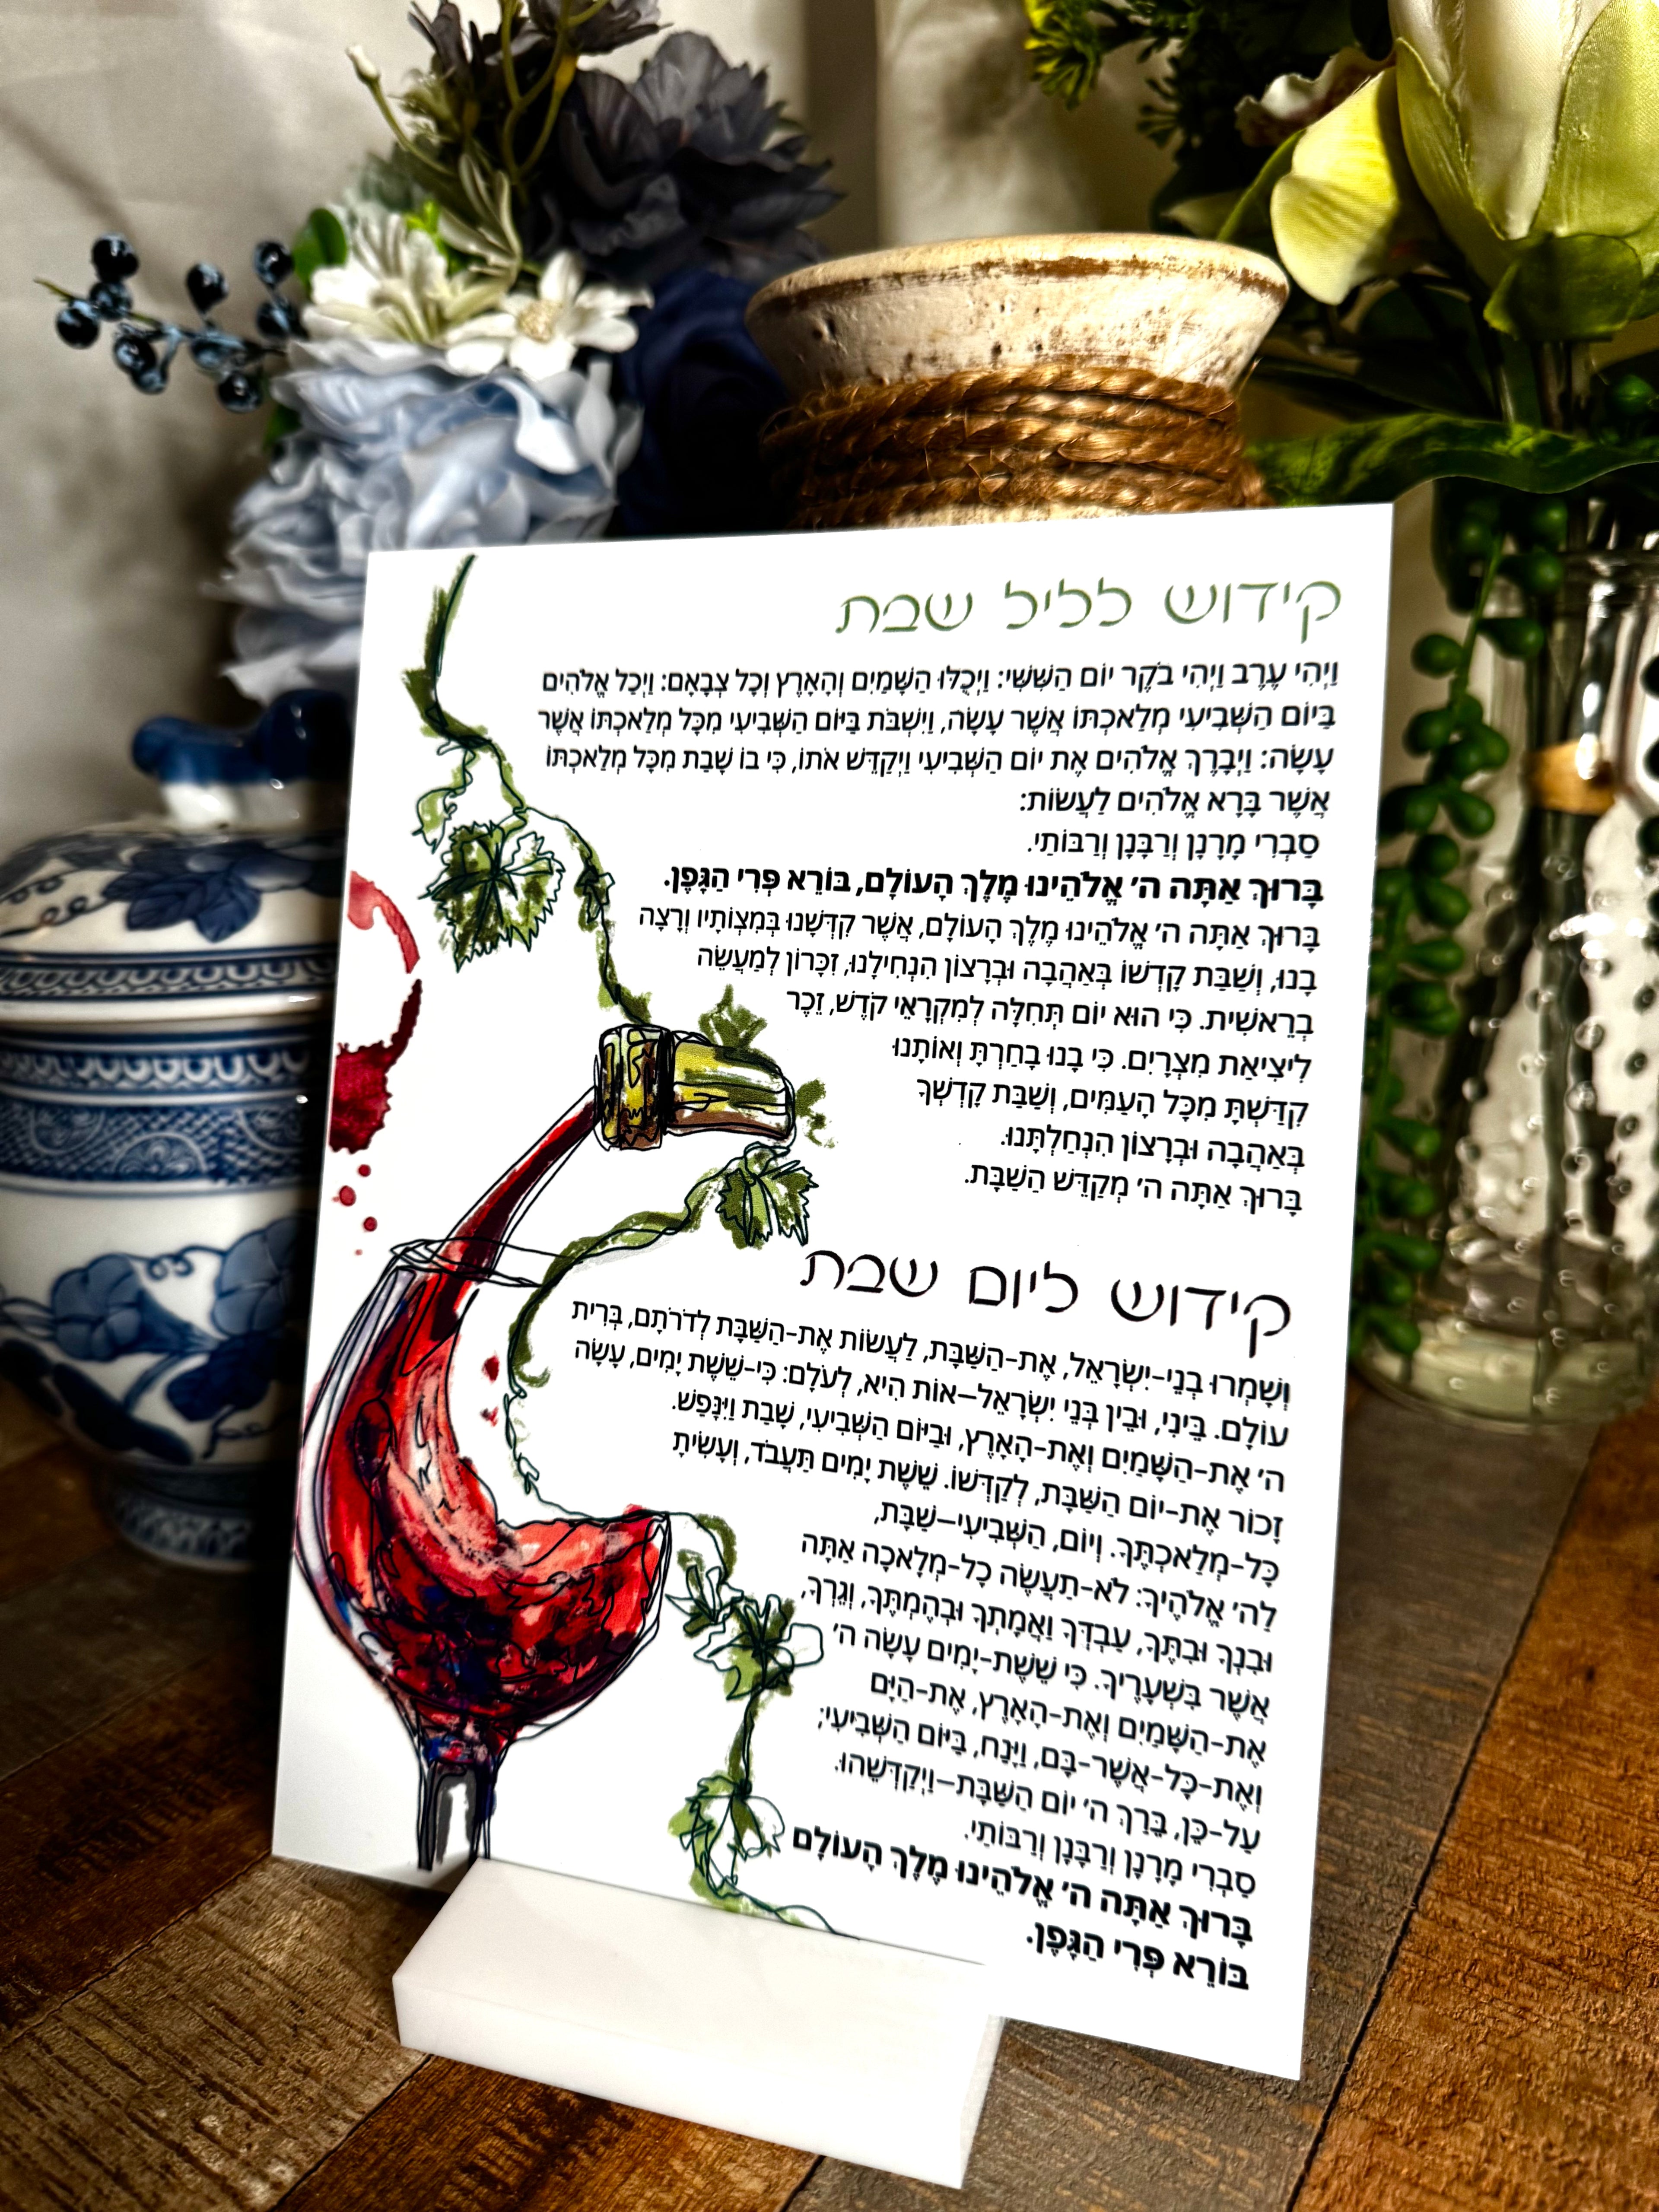 קידוש לליל שבת
וַיְהִי עֶרֶב וַיְהִי בֹקֶר יוֹם הַשִּׁשִּׁי: וַיְכֻלּוּ הַשָּׁמַיִם וְהָאָרֶץ וְכָל צְבָאָם: וַיְכַל אֱלֹהִים
בַּיּוֹם הַשְּׁבִיעִי מְלַאכְתּוֹ אֲשֶׁר עָשָׂה, וַיִּשְׁבֹּת בַּיּוֹם הַשְּׁבִיעִי מִכָּל מְלַאכְתּוֹ אֲשֶׁר
עָשָׂה: וַיְבָרֶךְ אֱלֹהִים אֶת יוֹם הַשְּׁבִיעִי וַיְקַדֵּשׁ אֹתוֹ, כִּי בוֹ שָׁבַת מִכָּל מְלַאכְתּוֹ
אֲשֶׁר בָּרָא אֱלֹהִים לַעֲשׂוֹת:
סַבְרִי מָרָנָן וְרַבָּנָן וְרַבּוֹתַי.
בָּרוּךְ אַתָּה ה' אֱלֹהֵינוּ מֶלֶךְ הָעוֹלָם, בּוֹרֵא פְּרִי הַגָּפֶן.
בָּרוּךְ אַתָּה ה' אֱלֹהֵינוּ מֶלֶךְ הָעוֹלָם, אֲשֶׁר קִדְּשָׁנוּ בְּמִצְוֹתָיו וְרָצָה
בָנוּ, וְשַׁבַּת קָדְשׁוֹ בְּאַהֲבָה וּבְרָצוֹן הִנְחִילָנוּ, זִכָּרוֹן לְמַעֲשֵׂה
בְרֵאשִׁית. כִּי הוּא יוֹם תְּחִלָּה לְמִקְרָאֵי קֹדֶשׁ, זֵכֶר
לִיצִיאַת מִצְרָיִם. כִּי בָנוּ בָחַרְתָּ וְאוֹתָנוּ
קִדַּשְׁתָּ מִכָּל הָעַמִּים, וְשַׁבַּת קָדְשְׁךָ
בְּאַהֲבָה וּבְרָצוֹן הִנְחַלְתָּנוּ.
בָּרוּךְ אַתָּה ה' מְקַדֵּשׁ הַשַּׁבָּת.
קידוש ליום שבת
וְשָׁמְרוּ בְנֵי-יִשְׂרָאֵל, אֶת-הַשַּׁבָּת, לַעֲשׂוֹת אֶת-הַשַּׁבָּת לְדֹרֹתָם, בְּרִית
עוֹלָם. בֵּינִי, וּבֵין בְּנֵי יִשְׂרָאֵל–אוֹת הִיא, לְעֹלָם: כִּי-שֵׁשֶׁת יָמִים, עָשָׂה
ה' אֶת-הַשָּׁמַיִם וְאֶת-הָאָרֶץ, וּבַיּוֹם הַשְּׁבִיעִי, שָׁבַת וַיִּנָּפַשׁ.
זָכוֹר אֶת-יוֹם הַשַּׁבָּת, לְקַדְּשׁוֹ. שֵׁשֶׁת יָמִים תַּעֲבֹד, וְעָשִׂיתָ
כָּל-מְלַאכְתֶּךָ. וְיוֹם, הַשְּׁבִיעִי–שַׁבָּת,
לַה' אֱלֹהֶיךָ: לֹא-תַעֲשֶׂה כָל-מְלָאכָה אַתָּה
וּבִנְךָ וּבִתֶּךָ, עַבְדְּךָ וַאֲמָתְךָ וּבְהֶמְתֶּךָ, וְגֵרְךָ,
אֲשֶׁר בִּשְׁעָרֶיךָ. כִּי שֵׁשֶׁת-יָמִים עָשָׂה ה'
אֶת-הַשָּׁמַיִם וְאֶת-הָאָרֶץ, אֶת-הַיָּם
וְאֶת-כָּל-אֲשֶׁר-בָּם, וַיָּנַח, בַּיּוֹם הַשְּׁבִיעִי;
עַל-כֵּן, בֵּרַךְ ה' יוֹם הַשַּׁבָּת–וַיְקַדְּשֵׁהוּ.
סַבְרִי מָרָנָן וְרַבָּנָן וְרַבּוֹתַי.
בָּרוּךְ אַתָּה ה' אֱלֹהֵינוּ מֶלֶךְ הָעוֹלָם
בּוֹרֵא פְּרִי הַגָּפֶן.